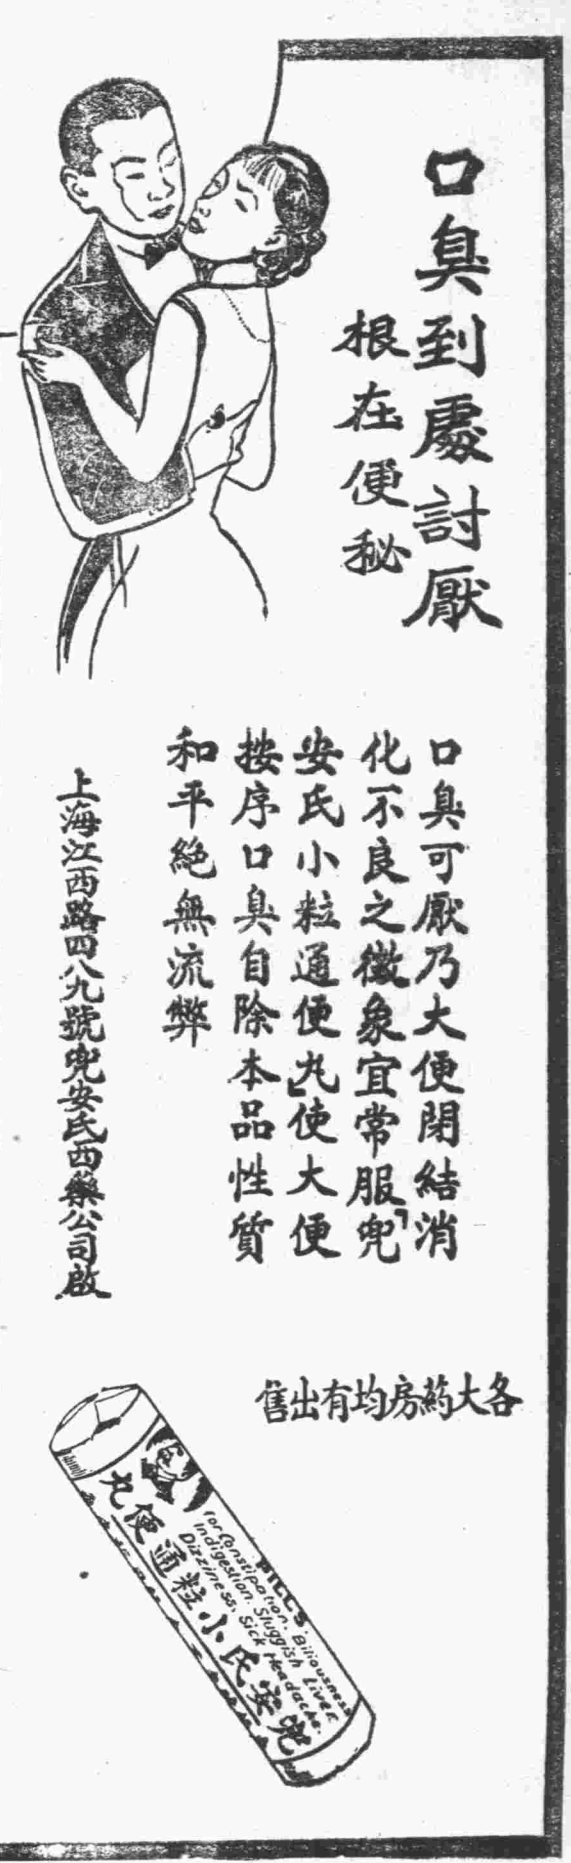 口臭到處討厭
根在便秘
口臭可厭乃大便閉結消
化不良之徵象宜常服「兜
安氏小粒通便丸」使大便
按序口臭自除本品性質
和平絕無流弊
上海江西路四八九號兜安氏西藥公司啟
各大藥房均有出售
PILLS
for Constipation, Biliousness
Indigestion, Sluggish Liver
Dizziness, Sick Headache.
兜安氏小粒通便丸